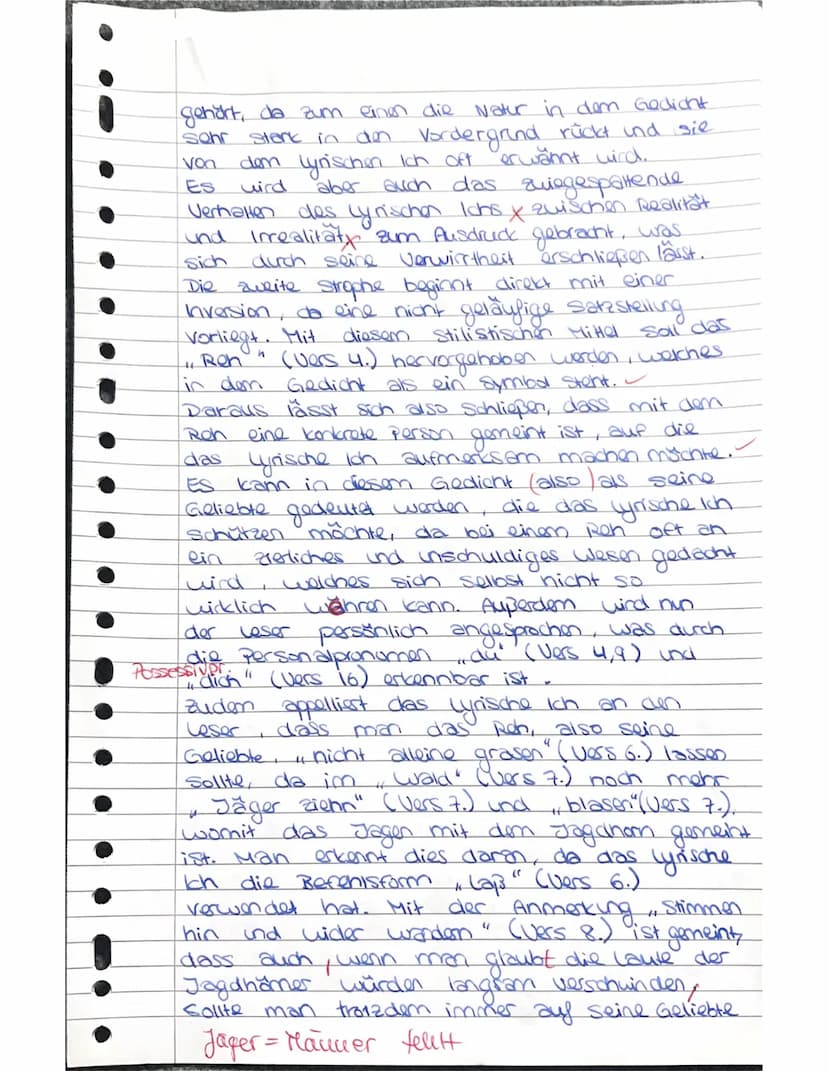 gehört, da zum einen die Natur in dem Gedicht
sehr stark in den Vordergrund rückt und sie
von dem lyrischen Ich oft erwähnt wird.
Es wird aber auch das zwiegespaltende
Verhalten des lyrischen Ichs x zwischen Realität
und Irrealität x zum Ausdruck gebracht, was
sich durch seine Verwirrtheit erschließen lässt.
Die zweite Strophe beginnt direkt mit einer
Inversion, da eine nicht geläufige Satzstellung
vorliegt. Mit diesem stilistischen Mittel soll das
„Reh" (Vers 4.) hervorgehoben werden, welches
in dem Gedicht als ein Symbol steht. ✓
Daraus lässt sich also schließen, dass mit dem
Reh eine konkrete Person gemeint ist, auf die
das lyrische Ich aufmerksam machen möchte. ✓
Es kann in diesem Gedicht (also) als seine
Geliebte gedeutet werden, die das lyrische Ich
schützen möchte, da bei einem Reh oft an
ein zierliches und unschuldiges Wesen gedacht
wird, welches sich selbst nicht so
wirklich wehren kann. Außerdem wird nun
der Leser persönlich angesprochen, was durch
die Personalpronomen „du" (Vers 4,9) und
Possessivpr.
„dich" (Vers 16) erkennbar ist.
Zudem appelliert das lyrische Ich an den
Leser, dass man das Reh, also seine
Geliebte, „nicht alleine grasen" (Vers 6.) lassen
sollte, da im „Wald" (Vers 7.) noch mehr
„Jäger ziehn" (Vers 7.) und „blasen" (Vers 7.),
womit das Jagen mit dem Jagdhorn gemeint
ist. Man erkennt dies daran, da das lyrische
Ich die Befehlsform „Laß" (Vers 6.)
verwendet hat. Mit der Anmerkung „Stimmen
hin und wider wandern" (Vers 8.) ist gemeint,
dass auch, wenn man glaubt die Laute der
Jagdhörner würden langsam verschwinden,
sollte man trotzdem immer auf seine Geliebte
Jäger = Männer fehlt